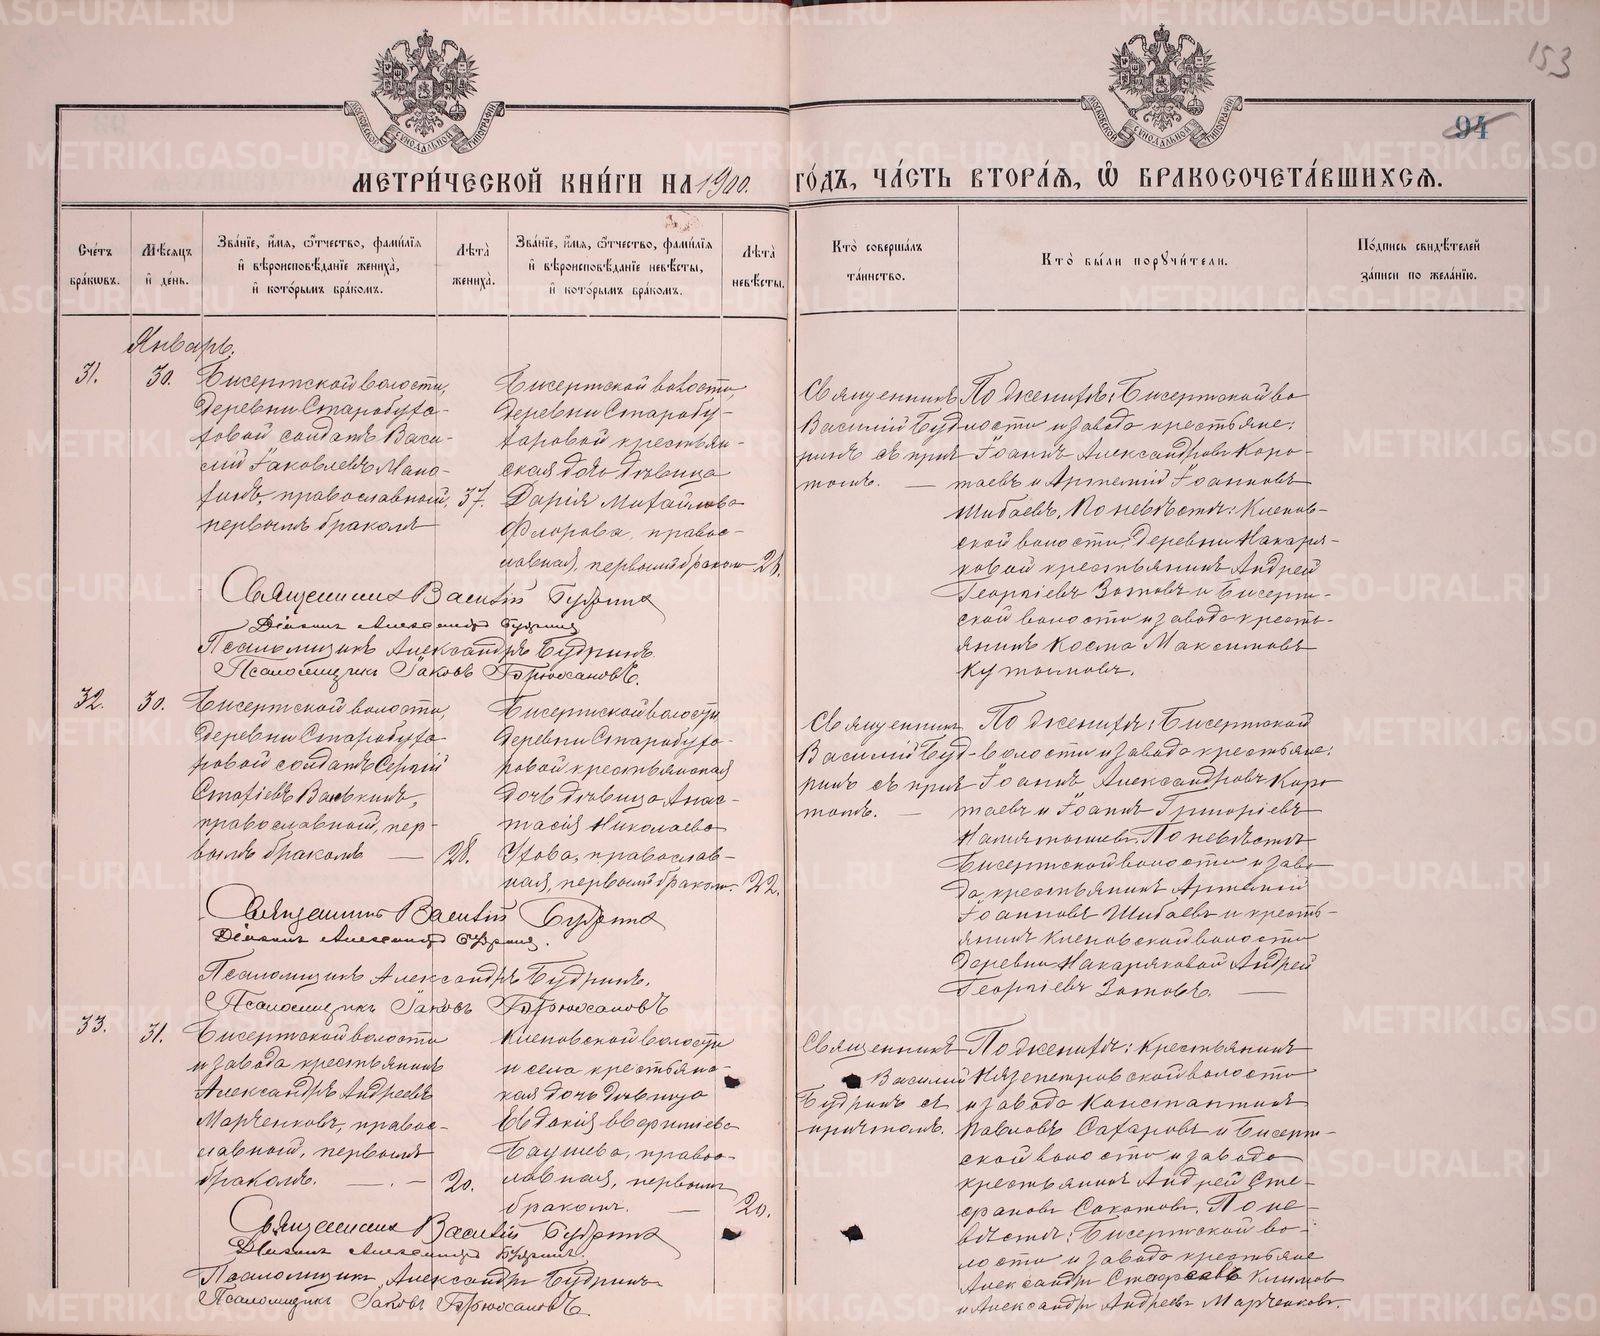 153
94
МОСКОВСКОЙ СѴНОДАЛЬНОЙ ТИПОГРАФІИ
МОСКОВСКОЙ СѴНОДАЛЬНОЙ ТИПОГРАФІИ
МЕТРИ́ЧЕСКОЙ КНИ́ГИ НА 1900. ГО́ДЪ, ЧА́СТЬ ВТОРА́Я, Ѡ҆ БРАКОСОЧЕТА́ВШИХСЯ.
Сче́тъ бра́кѡвъ.
Мѣ́сяцъ и҆ де́нь.
Зва́нїе, и҆́мя, ѻ҆́тчество, фами́лїя
и҆ вѣроисповѣ́данїе жениха̀,
и҆ кото́рымъ бра́комъ.
Лѣ́та̀ жениха̀.
Зва́нїе, и҆́мя, ѻ҆́тчество, фами́лїя
и҆ вѣроисповѣ́данїе невѣ́сты,
и҆ кото́рымъ бра́комъ.
Лѣ́та̀ невѣ́сты.
Кто̀ соверша́лъ та́инство.
Кто̀ бы́ли порꙋчи́тели.
По́дпись свидѣ́телей
за́писи по жела́нїю.
Январь.
31.
30.
Бисертской волости,
деревни Старобуха-
ровой солдатъ Васи-
лій Іаковлевъ
православный,
первымъ бракомъ
37.
Бисертской волости,
деревни Старобу-
харовой крестьян-
ская дочь дѣвица
Дарія Михайлова
Флорова, правос-
лавная, первымъ бракомъ
Священникъ
Василій Буд-
ринъ съ прич-
томъ. —
По женихѣ: Бисертской во
лости и завода крестьяне:
Іоаннъ Александровъ Коро-
таевъ и Артемій Іоанновъ
Шибаевъ. По невѣстѣ: Кленов-
ской волости, деревни Накаря-
ковой крестьянинъ Андрей
Георгіевъ Зотовъ и Бисерт-
ской волости и завода кресть-
янинъ Косма Максимовъ
Священникъ Василій Будринъ
Діаконъ Александръ Будринъ
Псаломщикъ Александръ Будринъ.
Псаломщикъ Іаковъ Брюхановъ.
32.
30.
Бисертской волости,
деревни Старобуха
ровой солдатъ Сергій
Васькинъ,
православный, пер-
вымъ бракомъ —
28.
Бисертской волости
деревни Старобуха-
ровой крестьянская
дочь дѣвица Анас-
тасія Николаева
православ-
ная, первымъ бракомъ.
22.
Священникъ
Василій Буд-
ринъ съ прич
томъ. —
По женихѣ: Бисертской
волости и завода крестьяне:
Іоаннъ Александровъ Коро
таевъ и Іоаннъ Григоріевъ
По невѣстѣ
Бисертской волости и заво
да, крестьянинъ Артемій
Іоанновъ Шибаевъ и кресть-
янинъ Кленовской волости
деревни Накаряковой Андрей
Георгіевъ Зотовъ. —
Священникъ Василій Будринъ
Діаконъ Александръ Будринъ.
Псаломщикъ Александръ Будринъ.
Псаломщикъ Іаковъ Брюхановъ
33.
31.
Бисертской волости
и завода крестьянинъ
Александръ Андреевъ
Марченковъ, правос-
лавный, первымъ
бракомъ. —
20.
Кленовской волости
и села крестьянс-
кая дочь дѣвица
Евдокія
правос-
лавная, первымъ
бракомъ. —
20.
Священникъ
Василій
Будринъ съ
причтомъ.
По женихѣ: крестьянинъ
Кязепетровской волости
и завода Константинъ
Павловъ Сахаровъ и Бисерт-
ской волости и завода
крестьянинъ Андрей Сте-
фановъ По не-
вѣстѣ: Бисертской во-
лости и завода крестьяне
Александръ Климов
и Александръ Андреевъ Марченковъ.
Священникъ Василій Будринъ
Діаконъ Александръ Будринъ.
Псаломщикъ Александръ Будринъ
Псаломщикъ Іаковъ Брюхановъ.
METRIKI.GASO-URAL.RU